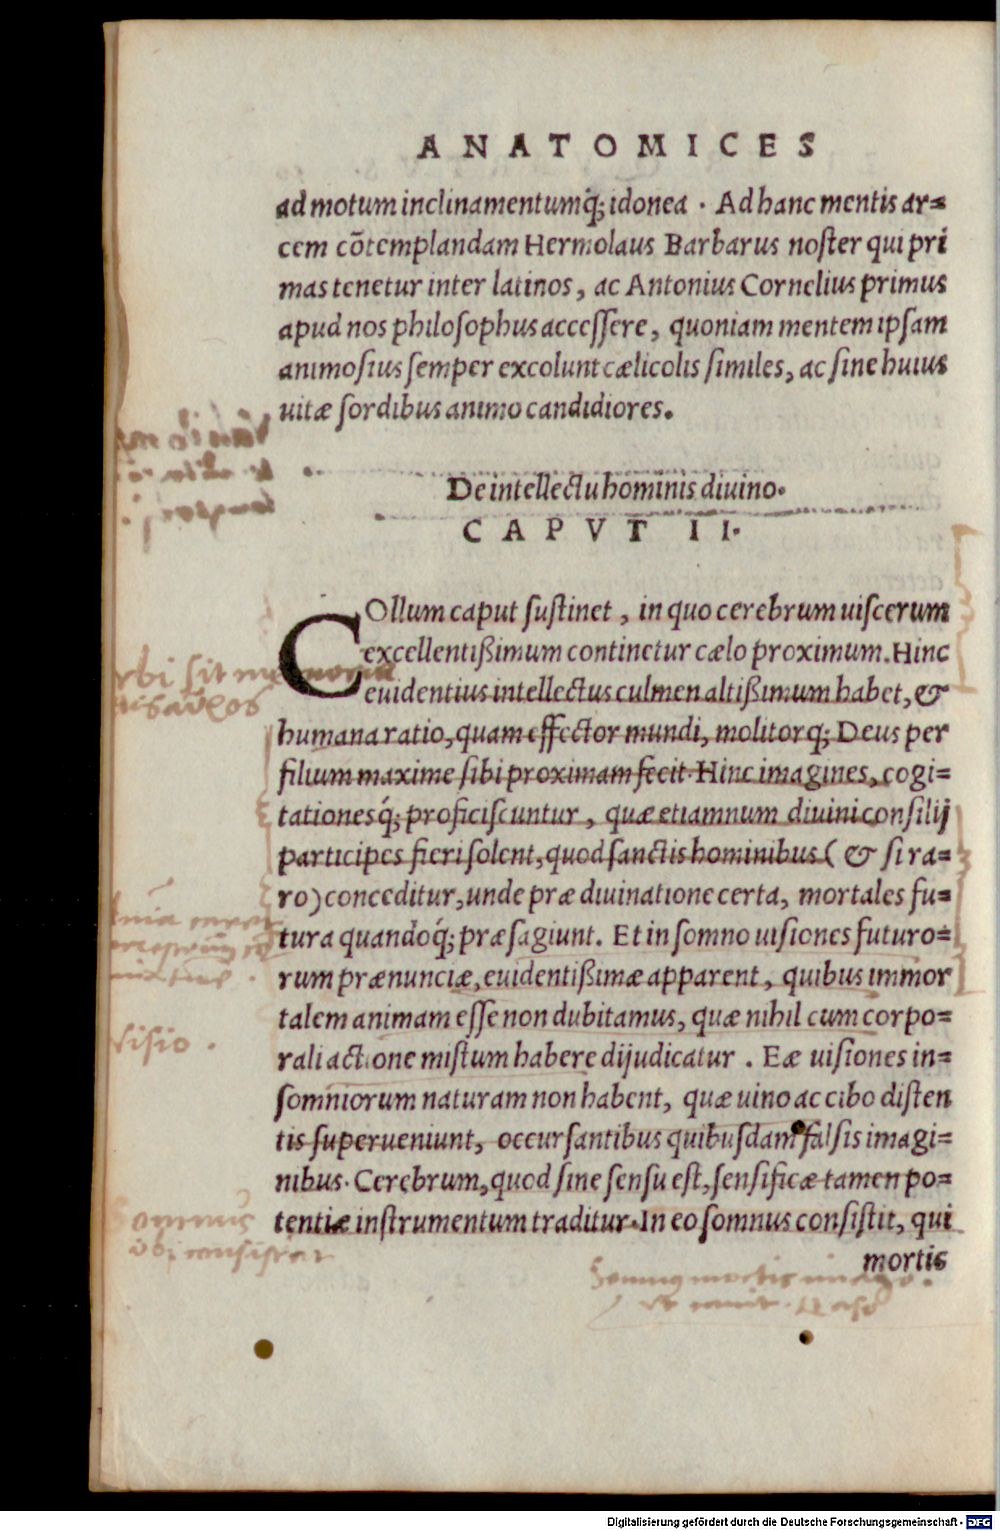 ANATOMICES
ad motum inclinamentumq́; idonea . Ad hanc mentis ar=
cem cōtemplandam Hermolaus Barbarus noſter qui pri
mas tenetur inter latinos, ac Antonius Cornelius primus
apud nos philoſophus acceſſere, quoniam mentem ipſam
animoſius ſemper excolunt cælicolis ſimiles, ac ſine huius
uitæ ſordibus animo candidiores.
De intellectu hominis diuino.
CAPVT II.
COllum caput ſuſtinet, in quo cerebrum uiſcerum
excellentißimum continetur cælo proximum. Hinc
euidentius intellectus culmen altißimum habet, &
humana ratio, quam effector mundi, molitorq; Deus per
filium maxime ſibi proximam fecit. Hinc imagines, cogi=
tationesq́; proficiſcuntur, quæ etiamnum diuini conſilij
participes fieri ſolent, quod ſanctis hominibus (& ſi ra=
ro) conceditur, unde præ diuinatione certa, mortales fu=
tura quandoq́; præſagiunt. Et in ſomno uiſiones futuro=
rum prænunciæ, euidentißimæ apparent, quibus immor
talem animam eſſe non dubitamus, quæ nihil cum corpo=
rali actione miſtum habere dijudicatur . Eæ uiſiones in=
ſomniorum naturam non habent, quæ uino ac cibo diſten
tis ſuperueniunt, occurſantibus quibuſdam falſis imagi=
nibus. Cerebrum, quod ſine ſenſu eſt, ſenſificæ tamen po=
tentiæ inſtrumentum traditur. In eo ſomnus conſiſtit, qui
mortis
Visio .
Somnus
ubi consistat
Somnus mortis imago.